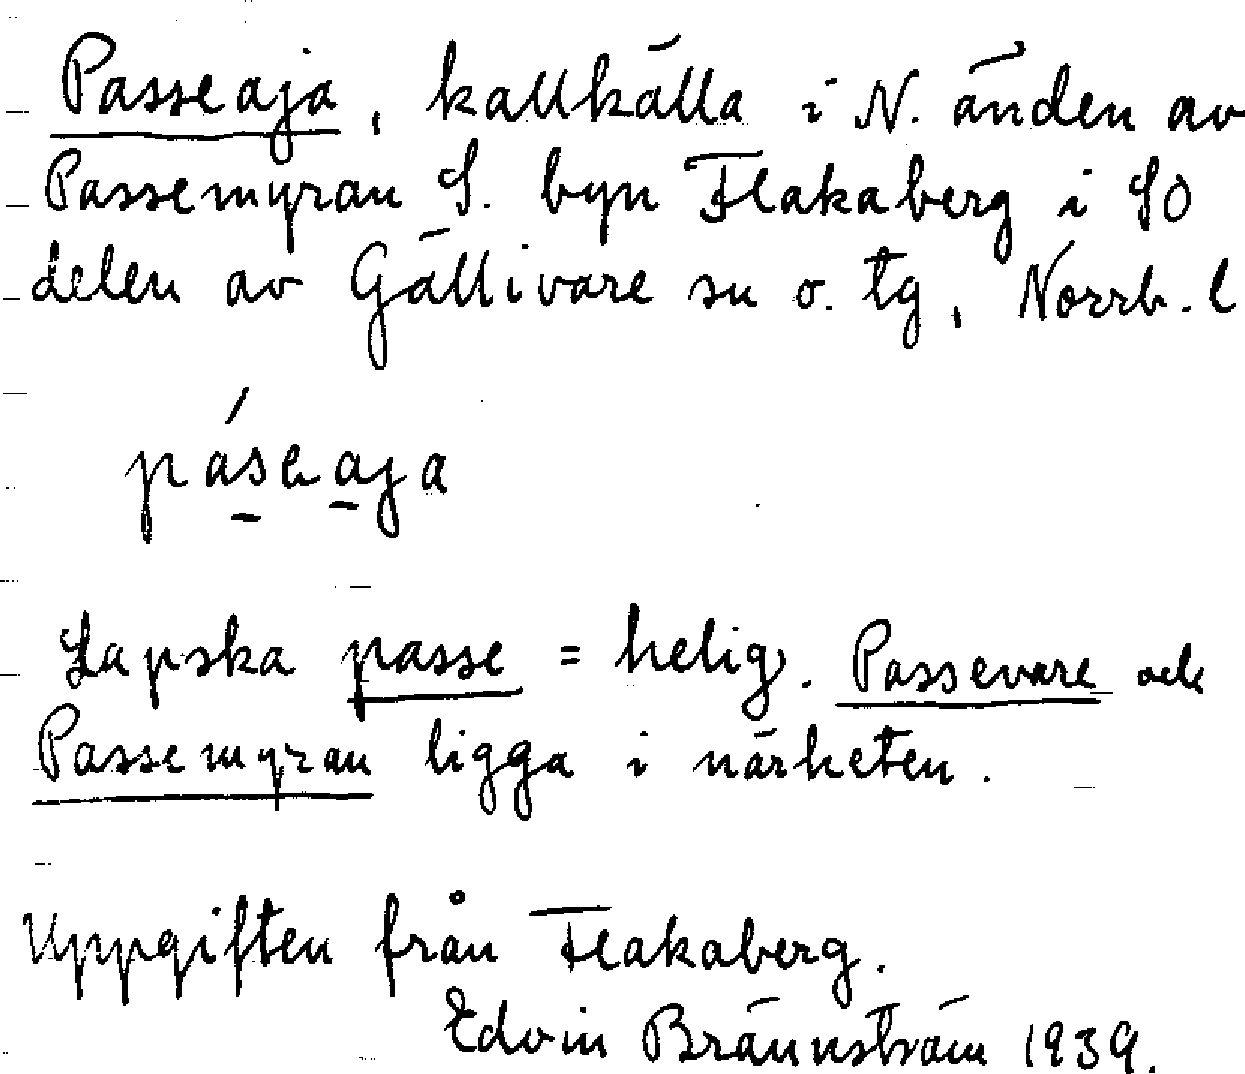 Passeaja, kallkälla i N. änden av
Passemyran S. byn Flakaberg i SO
delen av Gällivare sn o. tg, Norrb. l
páseaja
Lapska passe = helig. Passevare och
Passemyran ligga i närheten.
Uppgiften från Flakaberg.
Edvin Brännström 1939.